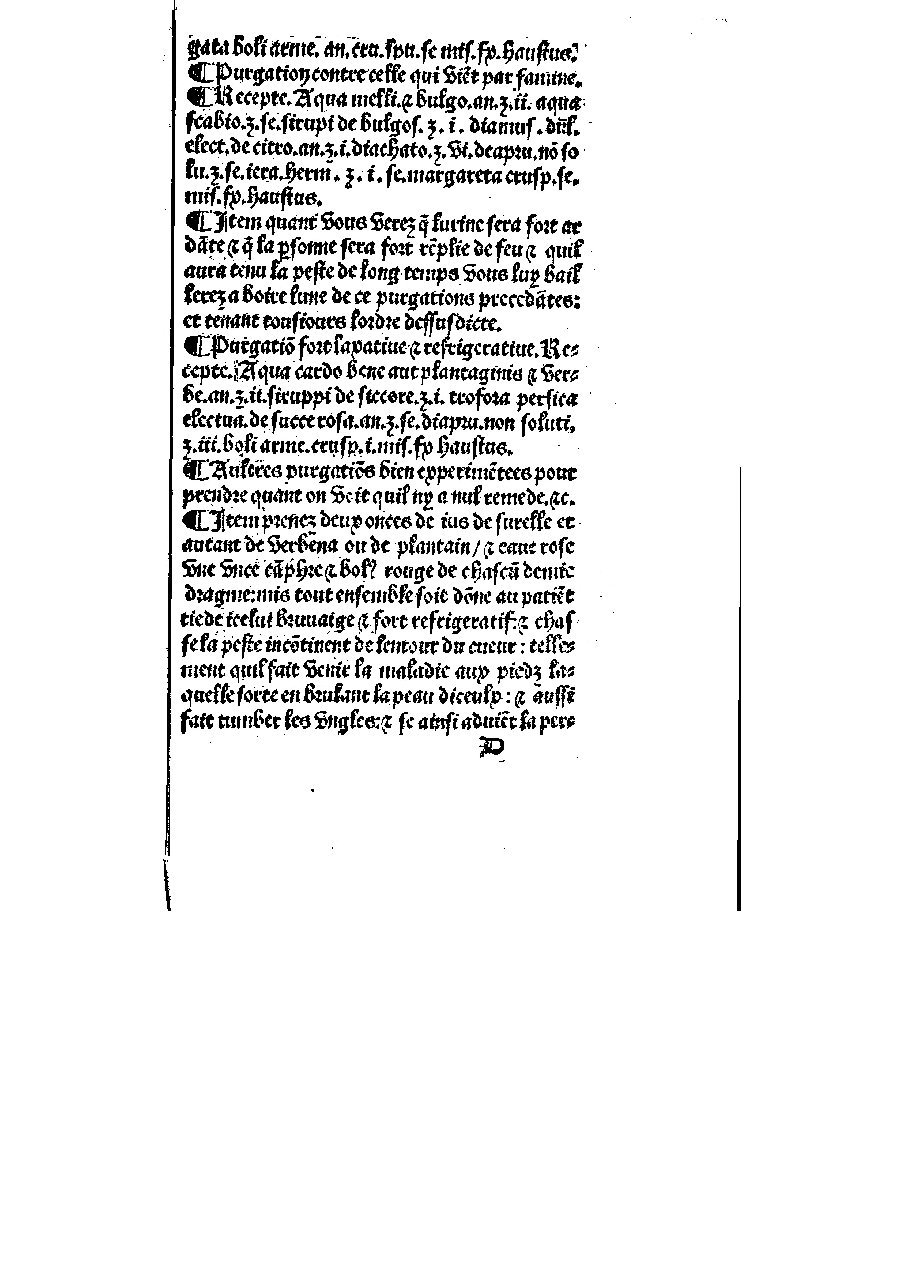 gata boli arme. an. cru. spu. se mis. fp. haustus.
¶ Purgation contre celle qui viẽt par famine.
¶ Recepte. Aqua melli. ⁊ bulgo. an. ʒ. ii. aqua
scabio. ʒ. se. sirupi de bulgos. ʒ. i. diamus. dul.
elect. de citro. an. ʒ. i. diachato. ʒ. vi. deapru. nõ so
lu. ʒ. se. iera. herm̃. ʒ. i. se. margareta crusp. se.
mis. fp. haustus.
¶ Item quant vous verez q̃ lurine sera fort ar
dãte ⁊ q̃ la psonne sera fort rẽplie de feu ⁊ quil
aura tenu la peste de long temps vous luy bail
lerez a boire lune de ce purgations precedãtes:
et tenant tousiours lordre dessusdicte.
¶ Purgatiõ fort lapatiue ⁊ refrigeratiue. Re-
cepte. Aqua cardo bene aut plantaginis ⁊ ver-
be. an. ʒ. ii. siruppi de siccore. ʒ. i. trofora persica
electua. de succe rosa. an. ʒ. se. diapru. non soluti.
ʒ. iii. boli arme. crusp. i. mis. fp haustus.
¶ Aultres purgatiõs bien expperimẽtees pour
prendre quant on voit quil ny a nul remede. ⁊c.
¶ Item prenez deux onces de ius de surelle et
autant de verbena ou de plantain/ ⁊ eaue rose
vne vnce cãphre ⁊ bol? rouge de chascũ demie
dragme: mis tout ensemble soit dõne au patiẽt
tiede icelui bruuaige ⁊ fort refrigeratif: ⁊ chas
se la peste incõtinent de lentour du cueur: telle-
ment quil fait venir la maladie aux piedz la-
quelle sorte en brulant la peau diceulx: ⁊ aussi
fait tumber les vngles: ⁊ se ainsi aduiẽt la pers
D